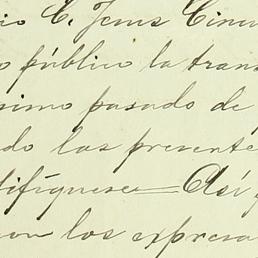 io C. Jesus Cine
o público la trans
ximo pasado de
do las presente
tifíquese= Así
ron los expresa